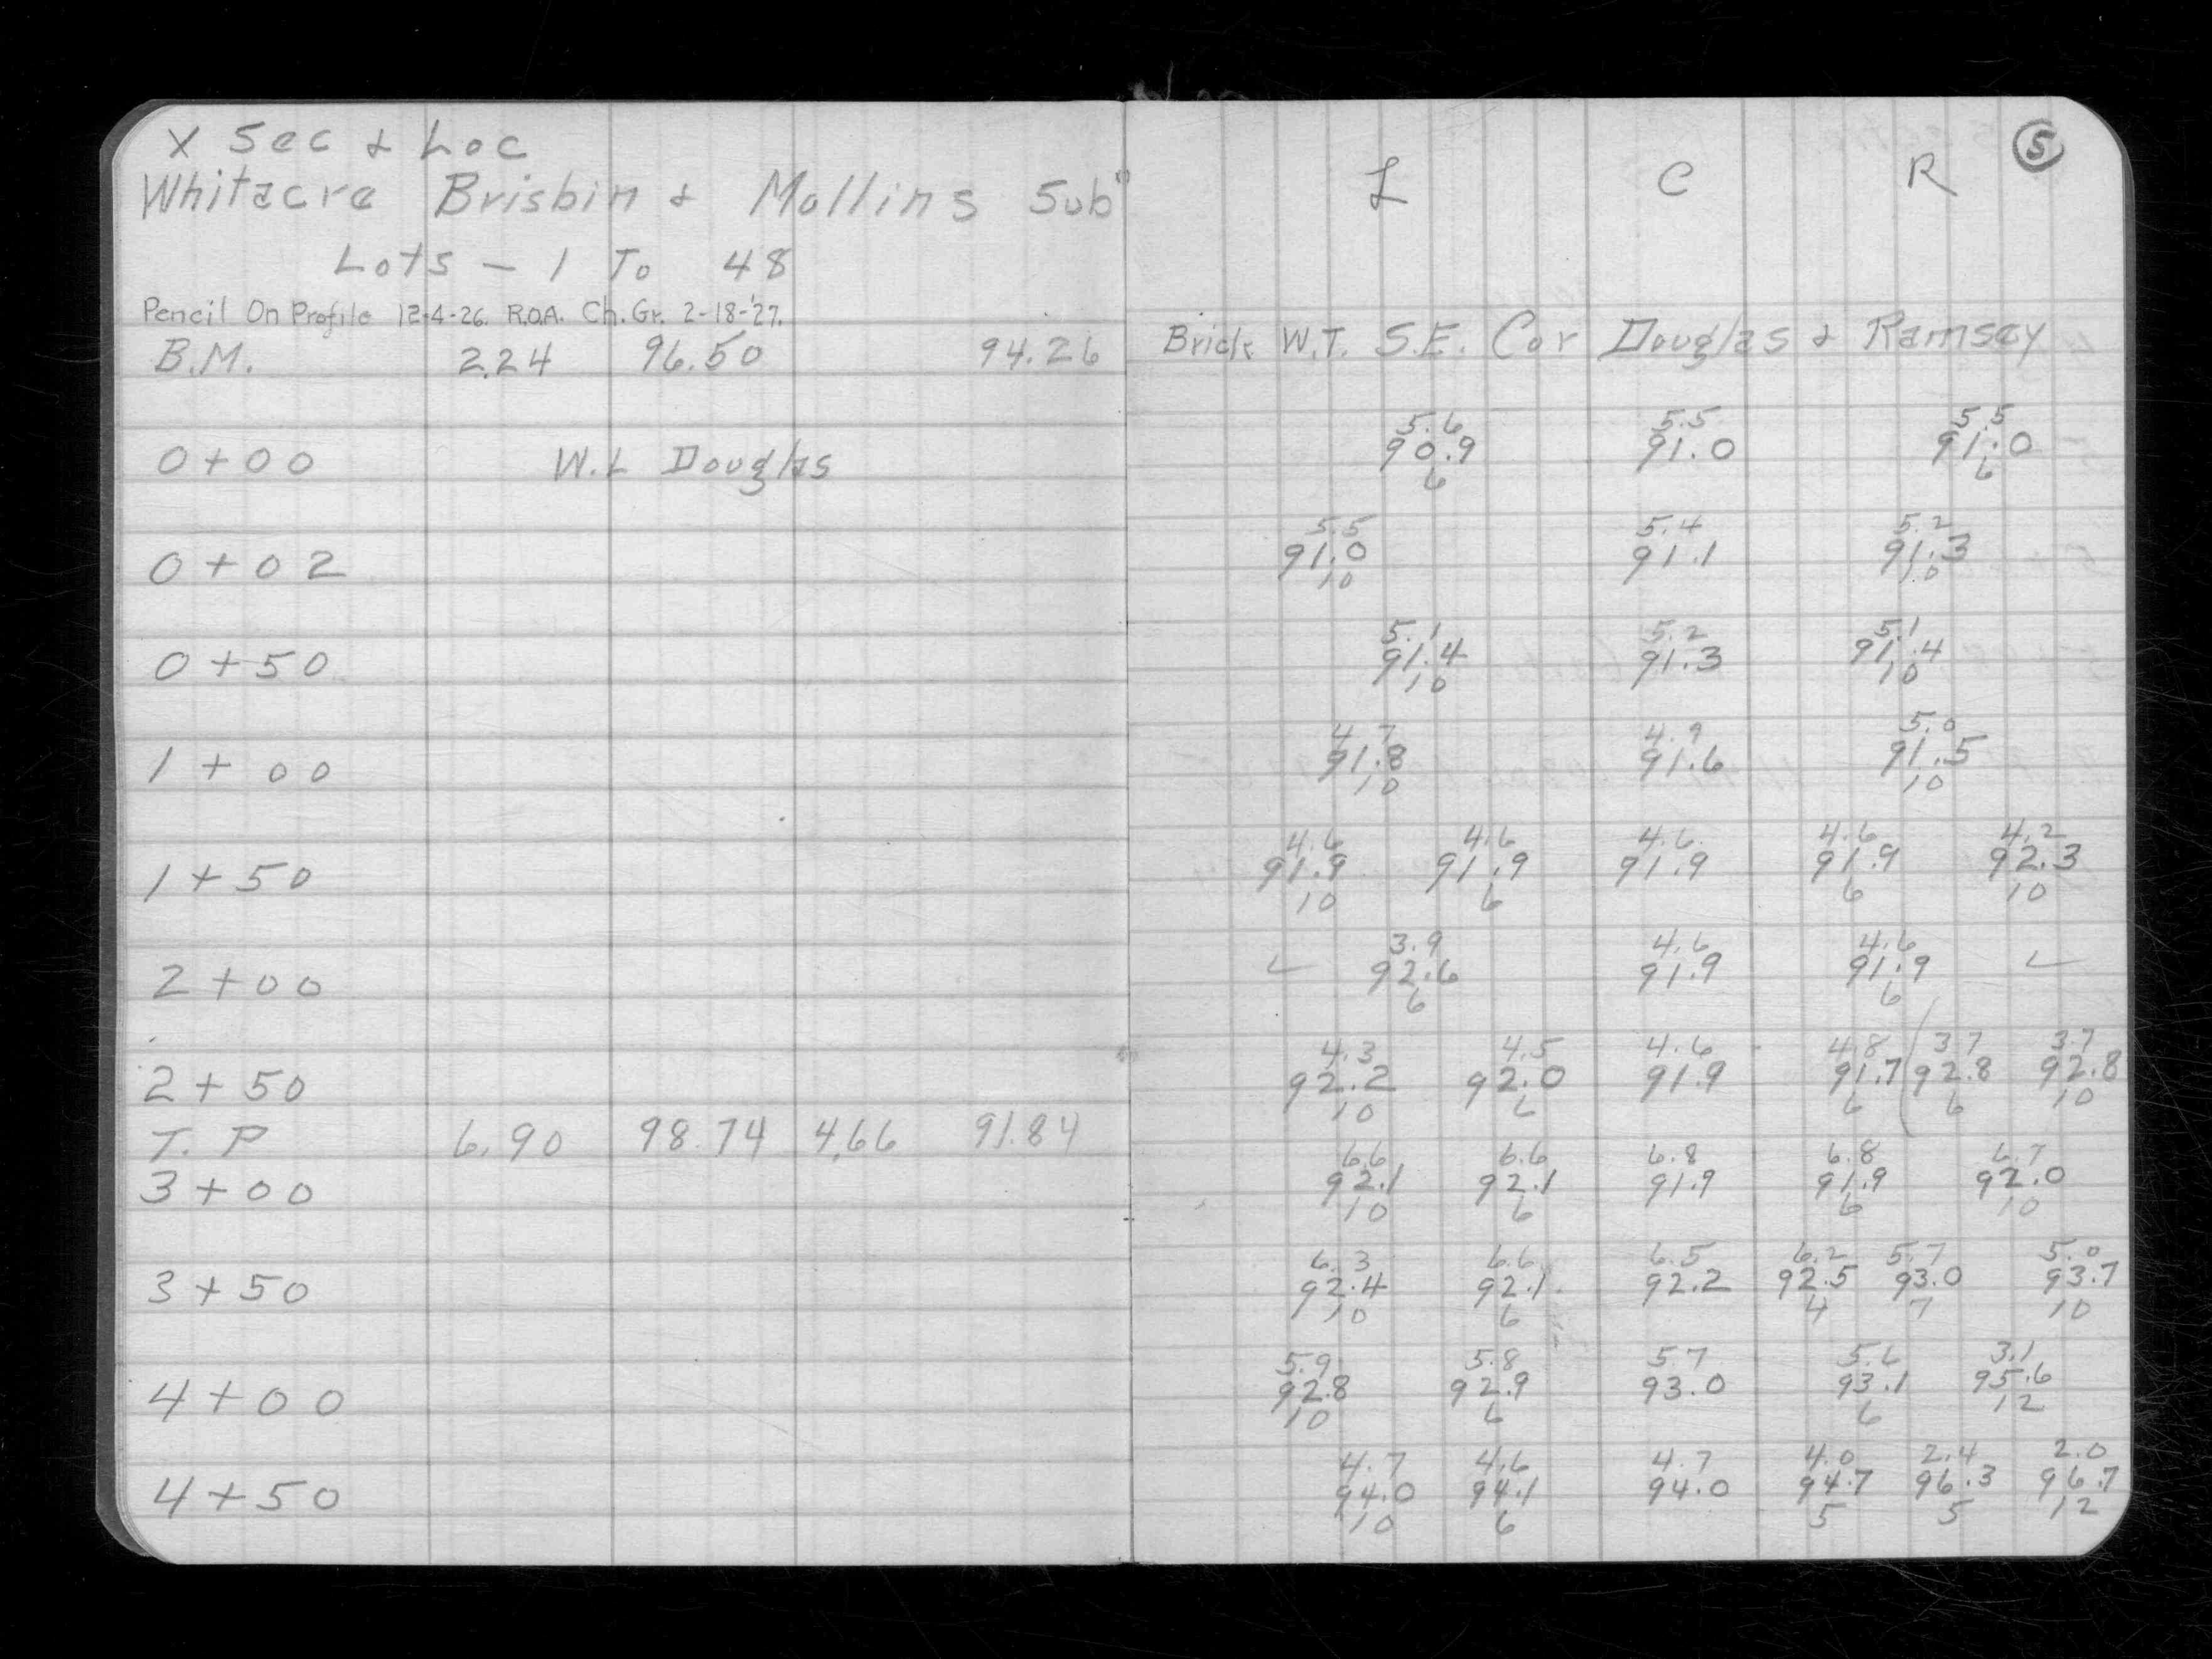 X Sec & Loc
Whitacre Brisbin & Mollins Sub"
Lots - 1 To 48
Pencil On Profile 12-4-26. R.O.A. Ch. Gr. 2-18-'27.
B.M. 2.24 96.50 94.26
0+00 W.L Douglas
0+02
0+50
1+00
1+50
2+00
2+50
T.P 6.90 98.74 4.66 91.84
3+00
3+50
4+00
4+50
5
L C R
Brick W.T. S.E. Cor Douglas & Ramsey
5.6 5.5 5.5
90.9 91.0 91.0
6 6
5.5 5.4 5.2
91.0 91.1 91.3
10 10
5.1 5.2 5.1
91.4 91.3 91.4
10 10
4.7 4.9 5.0
91.8 91.6 91.5
10 10
4.6 4.6 4.6 4.6 4.2
91.9 91.9 91.9 91.9 92.3
10 6 6 10
3.9 4.6 4.6
92.6 91.9 91.9
6 6
4.3 4.5 4.6 4.8 3.7 3.7
92.2 92.0 91.9 91.7 92.8 92.8
10 6 6 6 10
6.6 6.6 6.8 6.8 6.7
92.1 92.1 91.9 91.9 92.0
10 6 6 10
6.3 6.6 6.5 6.2 5.7 5.0
92.4 92.1 92.2 92.5 93.0 93.7
10 6 4 7 10
5.9 5.8 5.7 5.6 3.1
92.8 92.9 93.0 93.1 95.6
10 6 6 12
4.7 4.6 4.7 4.0 2.4 2.0
94.0 94.1 94.0 94.7 96.3 96.7
10 6 5 5 12